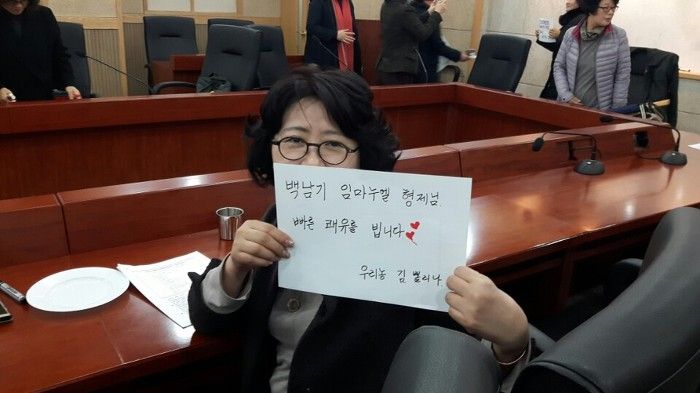 백남기 임마누엘 형제님
빠른 쾌유를 빕니다
우리농 김 삘리나